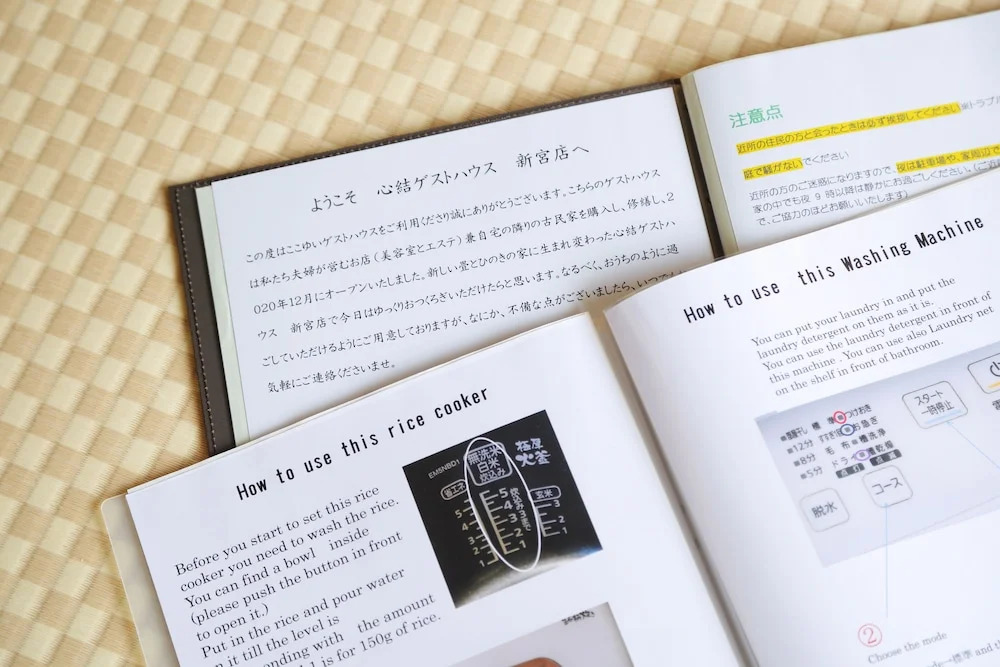 ようこそ 心結ゲストハウス 新宮店へ
この度はこころゆいゲストハウスをご利用くださり誠にありがとうございます。こちらのゲストハウス
は私たち夫婦が営むお店(美容室とエステ)兼自宅の隣りの古民家を購入し、修繕し、2
020年12月にオープンいたしました。新しい畳とひのきの家に生まれ変わった心結ゲストハ
ウス 新宮店で今日はゆっくりおつろぎいただけたらと思います。なるべく、おうちのように過
ごしていただけるようにご用意しておりますが、なにか、不備な点がございましたら、
気軽にご連絡くださいませ。
注意点
近所の住民の方と会ったときは必ず挨拶してください
庭で騒がないでください
近所の方のご迷惑になりますので、夜は駐車場や、家周辺で
家の中でも夜 9 時以降は静かにお過ごしください。
で、ご協力のほどお願いいたします)
How to use this rice cooker
Before you start to set this rice
cooker you need to wash the rice.
You can find a bowl inside
(please push the button in front
to open it.)
Put in the rice and pour water
in it till the level is
with the amount
1 is for 150g of rice.
EM5NB01
無洗米
白米
炊込み
極厚
火釜
省エネ
玄米
5
4
3
2
1
5
4
3
2
1
炊込み3まで
3
2
1
How to use this Washing Machine
You can put your laundry in and put the
laundry detergent on them as it is.
You can use the laundry detergent in front of
this machine. You can use also Laundry net
on the shelf in front of bathroom.
標準 つけおき
12分 すすぎ お急ぎ
8分 毛布 槽洗浄
5分 ドライ 槽乾燥
スタート
一時停止
コース
脱水
②
Choose the mode
標準 and